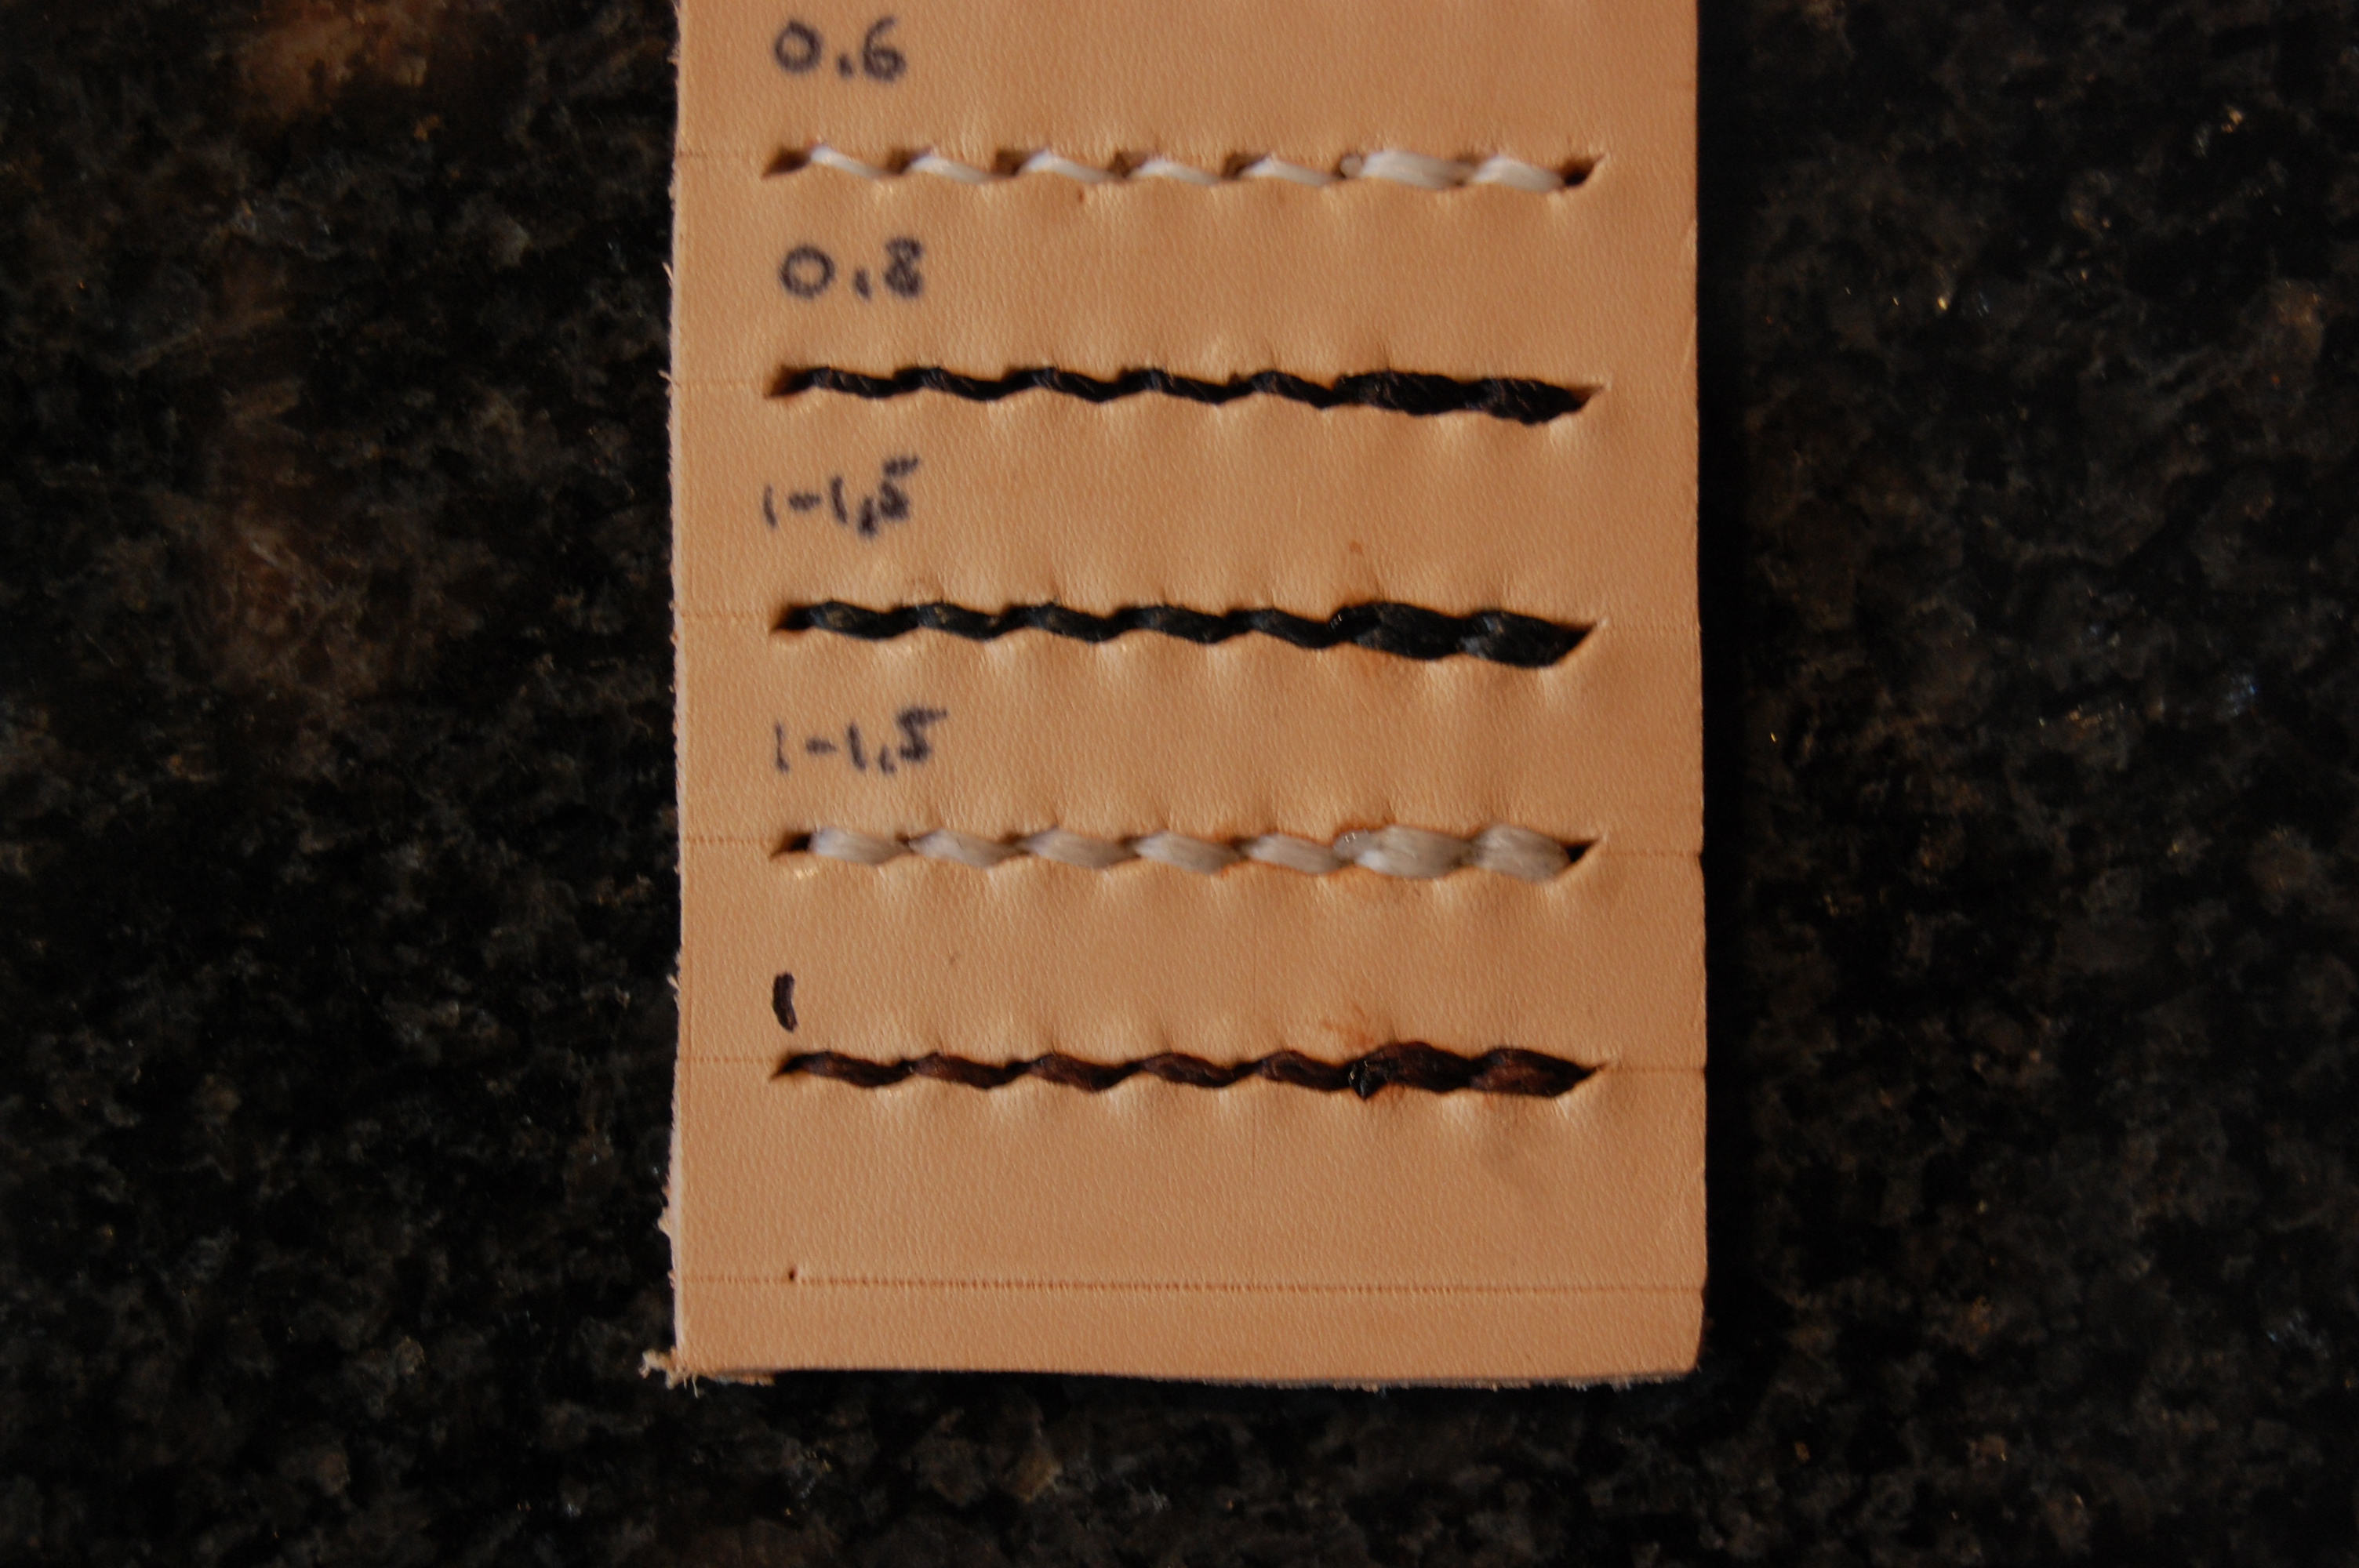 0.6
0.8
1-1,5
1-1,5
1